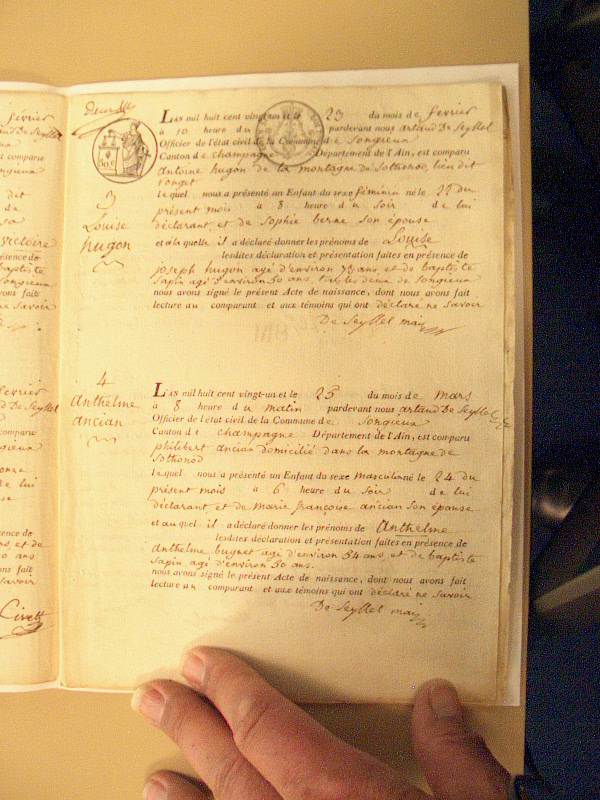 février
De Seyssel
comparu
Songieux
dit
de
victoire
présence de
baptiste
Songieux
avons fait
ne savoir
février
De Seyssel
comparu
de lui
présence de
et de
50 ans
avons fait
savoir
Civett
3
Louise
hugon
L'an mil huit cent vingt-un et le 23 du mois de février
à 10 heure du pardevant nous artaud De Seyssel
Officier de l'état civil de la Commune de Songieux
Canton de champagne Département de l'Ain, est comparu
Antoine hugon de la montagne de Sothonod, lieu dit
Lequel nous a présenté un Enfant du sexe féminin né le 22 du
présent mois à 8 heure du soir de lui
déclarant et de Sophie berne son épouse
et à laquelle il a déclaré donner les prénoms de Louise
lesdites déclaration et présentation faites en présence de
joseph hugon agé d'environ 73 ans, et de baptiste
Sapin agé d'environ 50 ans tous les deux de Songieux
nous avons signé le présent Acte de naissance, dont nous avons fait
lecture au comparant et aux témoins qui ont déclaré ne savoir
De Seyssel maire
4
Anthelme
ancian
L'an mil huit cent vingt-un et le 25 du mois de mars
à 8 heure du matin pardevant nous artaud De Seyssel
Officier de l'état civil de la Commune de Songieux
Canton de champagne Département de l'Ain, est comparu
philibert ancian domicilié dans la montagne de
Sothonod
lequel nous a présenté un Enfant du sexe masculin né le 24 du
présent mois à 6 heure du soir de lui
déclarant et de marie françoise ancian son épouse
et au quel il a déclaré donner les prénoms de Anthelme
lesdites déclaration et présentation faites en présence de
Anthelme bugnet agé d'environ 54 ans, et de baptiste
Sapin agé d'environ 50 ans.
nous avons signé le présent Acte de naissance, dont nous avons fait
lecture au comparant et aux témoins qui ont déclaré ne savoir
De Seyssel maire